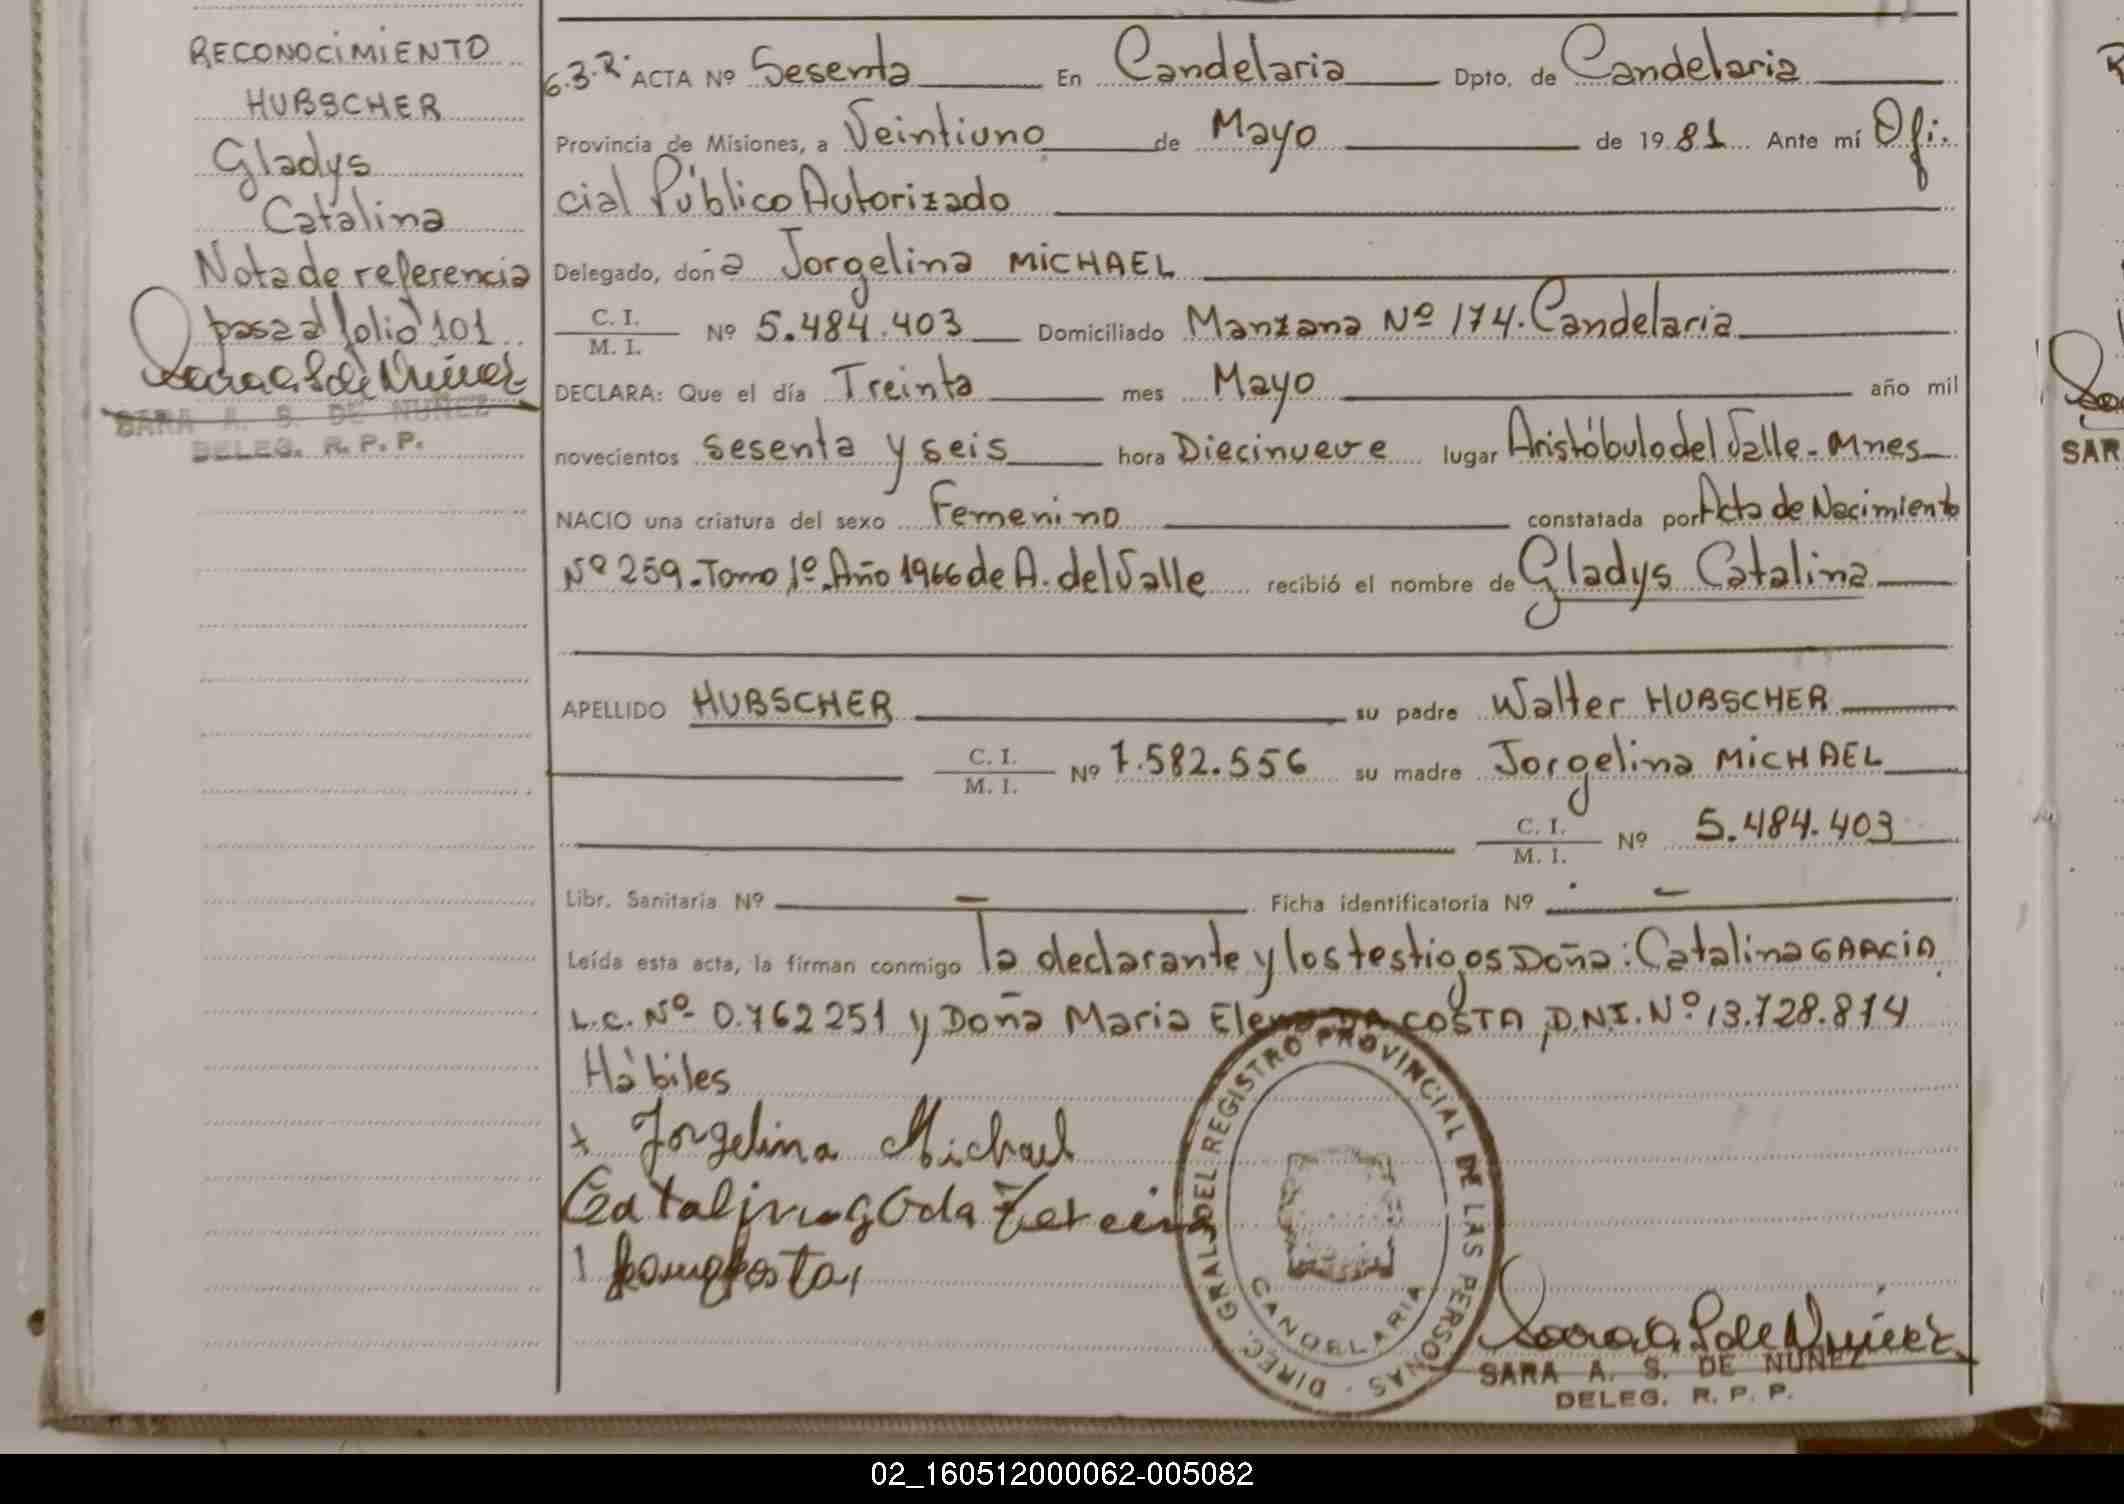 RECONOCIMIENTO
HUBSCHER
Gladys
Catalina
Nota de referencia
pasa al folio 101
SARA A. S. DE NUÑEZ
DELEG. R. P. P.
6.3.2. ACTA Nº Sesenta En Candelaria Dpto. de Candelaria
Provincia de Misiones, a Veintiuno de Mayo de 1981 Ante mí Ofi-
cial Público Autorizado
Delegado, doña Jorgelina MICHAEL
C. I.
M. I. Nº 5.484.403 Domiciliado Manzana Nº 174. Candelaria
DECLARA: Que el día Treinta mes Mayo año mil
novecientos sesenta y seis hora Diecinueve lugar Aristóbulo del Valle - Mnes
NACIO una criatura del sexo Femenino constatada por Acta de Nacimiento
Nº 259. Tomo 1º. Año 1966 de A. del Valle recibió el nombre de Gladys Catalina
APELLIDO HUBSCHER su padre Walter HUBSCHER
C. I.
M. I. Nº 7.582.556 su madre Jorgelina MICHAEL
C. I.
M. I. Nº 5.484.403
Libr. Sanitaria Nº — Ficha identificatoria Nº —
Leída esta acta, la firman conmigo la declarante y los testigos Doña: Catalina GARCIA
L.C. Nº 0.762251 y Doña Maria Elena DA COSTA, D.N.I. Nº 13.728.874
Hábiles
Jorgelina Michael
DIREC. GRAL. DEL REGISTRO PROVINCIAL DE LAS PERSONAS - CANDELARIA
SARA A. S. DE NUÑEZ
DELEG. R. P. P.
SAR
02_160512000062-005082